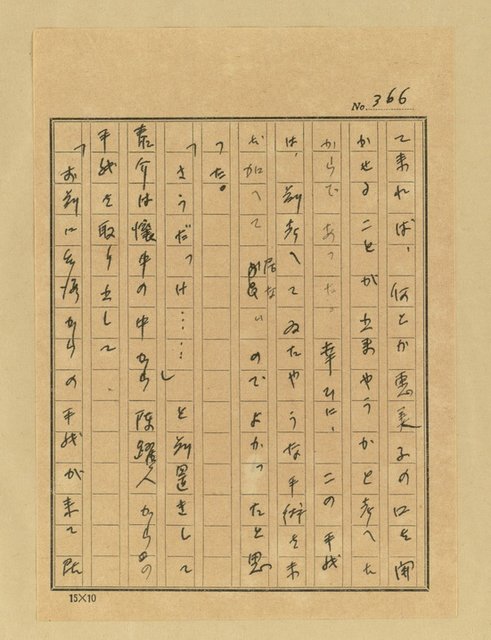 No. 366
て来れば、何とか恵美子の口を開
かせることが出来やうかと考へた
からであった。幸ひに、この手紙
は、前考へてゐたやうな手術を未
だ加へて居ないのでよかったと思
った。
「さうだっけ……」と前置きして
秦介は懐中の中から陳躍人からの
手紙を取り出して、
「お前に台湾からの手紙が来て居
15×10